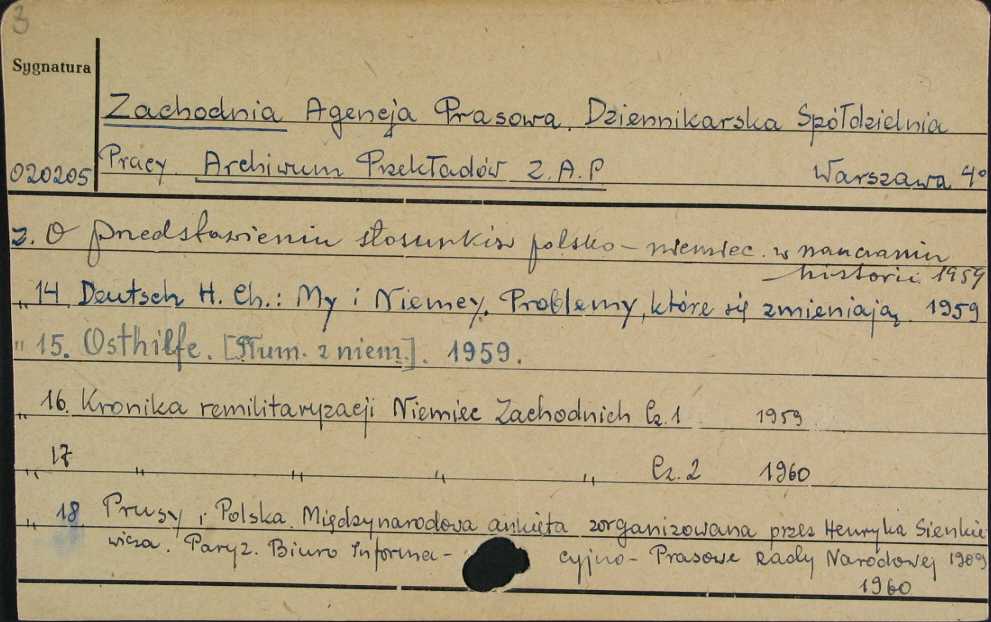 3
Sygnatura
Zachodnia Agencja Prasowa. Dziennikarska Spółdzielnia
020205 Pracy. Archiwum Przekładów Z.A.P Warszawa 4°
z. O przedstawieniu stosunków polsko-niemiec. w nauczaniu
historii 1959
" 14 Deutsch H. Ch.: My i Niemcy. Problemy, które się zmieniają. 1959
" 15. Osthilfe. [Tłum. z niem.]. 1959.
" 16. Kronika remilitaryzacji Niemiec Zachodnich Cz. 1 1959
" 17 " " " " Cz. 2 1960
" 18 Prusy i Polska. Międzynarodowa ankieta zorganizowana przez Henryka Sienkie
wicza. Paryż. Biuro Informa- cyjno- Prasowe Rady Narodowej 1909
1960